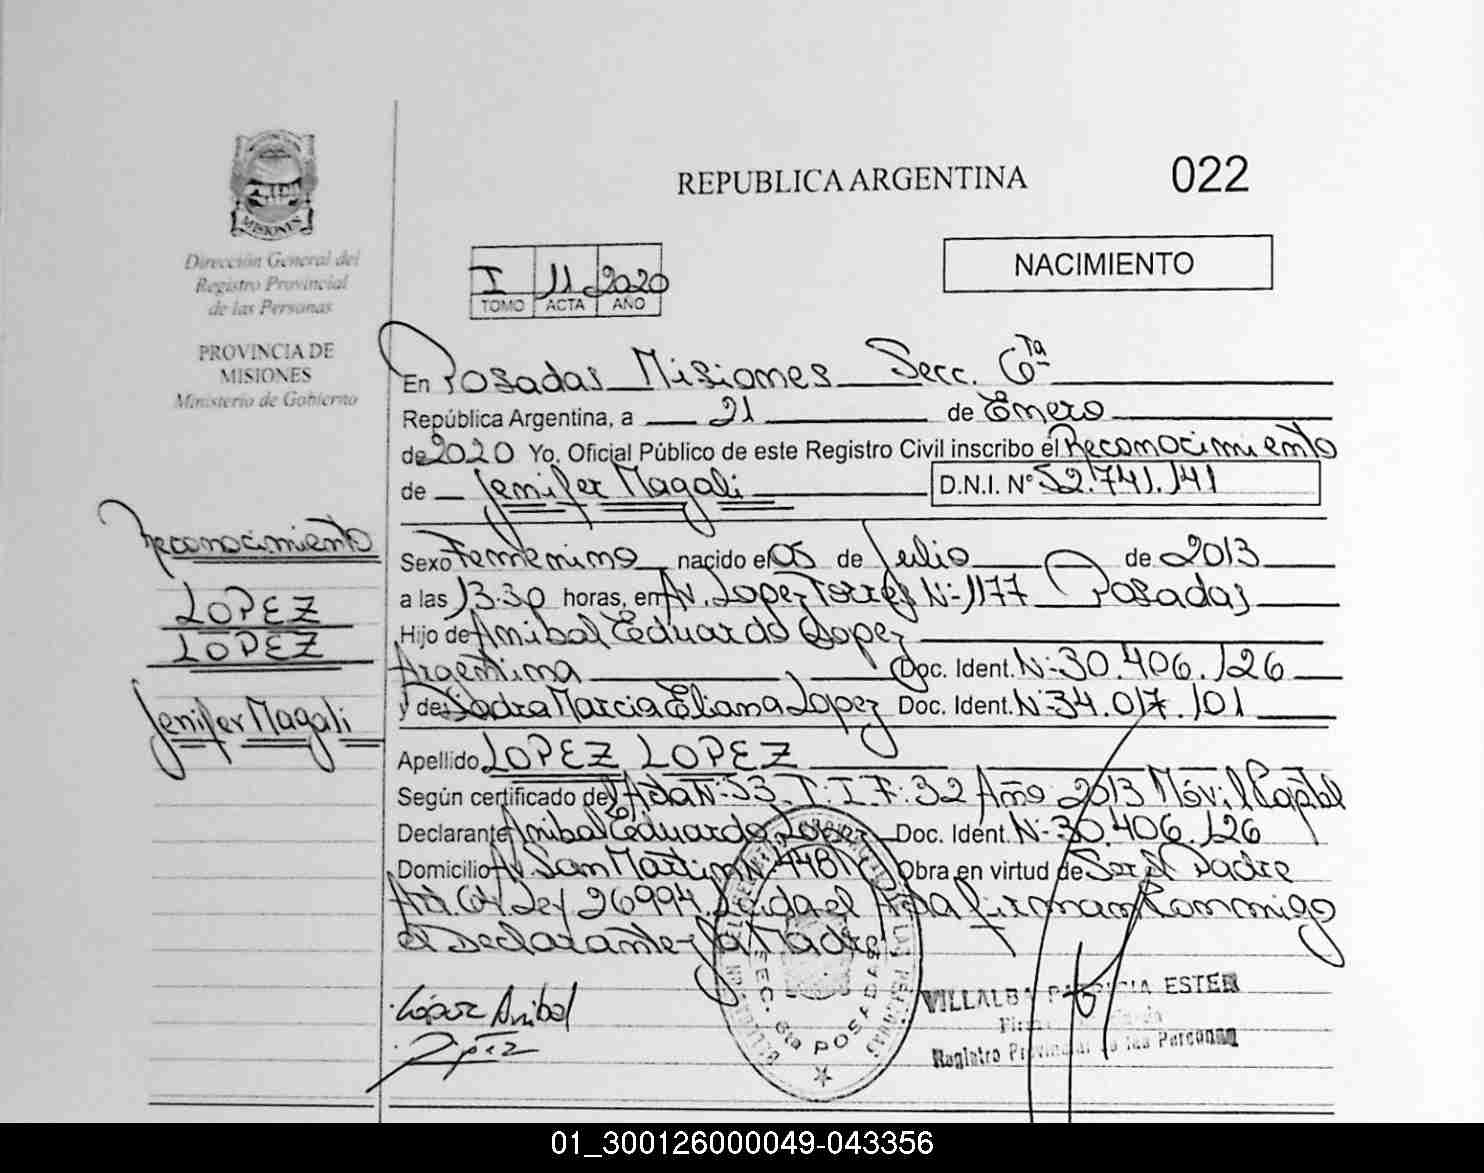 REPUBLICA ARGENTINA
022
MISIONES
Dirección General del
Registro Provincial
de las Personas
PROVINCIA DE
MISIONES
Ministerio de Gobierno
I 11 2020
TOMO ACTA AÑO
NACIMIENTO
En Posadas Misiones Secc. 6ta
República Argentina, a 21 de Enero
de 2020 Yo. Oficial Público de este Registro Civil inscribo el Reconocimiento
de Jenifer Magali D.N.I. N° 52.741.141
Reconocimiento
LOPEZ
LOPEZ
Jenifer Magali
Sexo Femenino nacido el 05 de Julio de 2013
a las 13.30 horas, en Av. Lopez Torres N-1177 Posadas
Hijo de Anibal Eduardo Lopez
Argentina Doc. Ident. N-30.406.126
y de Marcia Eliana Lopez Doc. Ident. N-34.017.101
Apellido LOPEZ LOPEZ
Según certificado del Acta N-53 T.I F.32 Año 2013 Móvil Capital
Declarante Anibal Eduardo Lopez Doc. Ident. N-30.406.126
Domicilio Av San Martin N-4481 Obra en virtud de Ser el Padre
Ley 26994 Leida el Acta firman Conmigo
el Declarante y la Madre
López Anibal
SEC. 6ta POSADAS
VILLALBA PATRICIA ESTER
Registro Provincial de las Personas
01_300126000049-043356